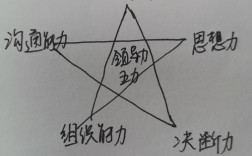 沟通能力
思想力
领导力
五力
组织能力
决断力